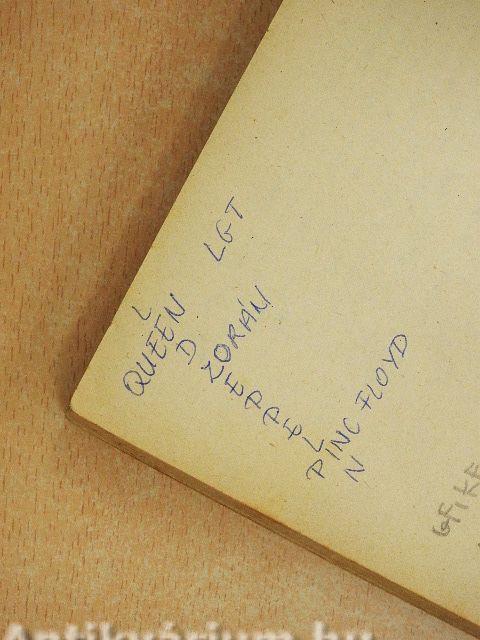 L
QUEEN LGT
D
ZORÁN
E
P
P
E
L
PINC FLOYD
N
Antikvárium.hu